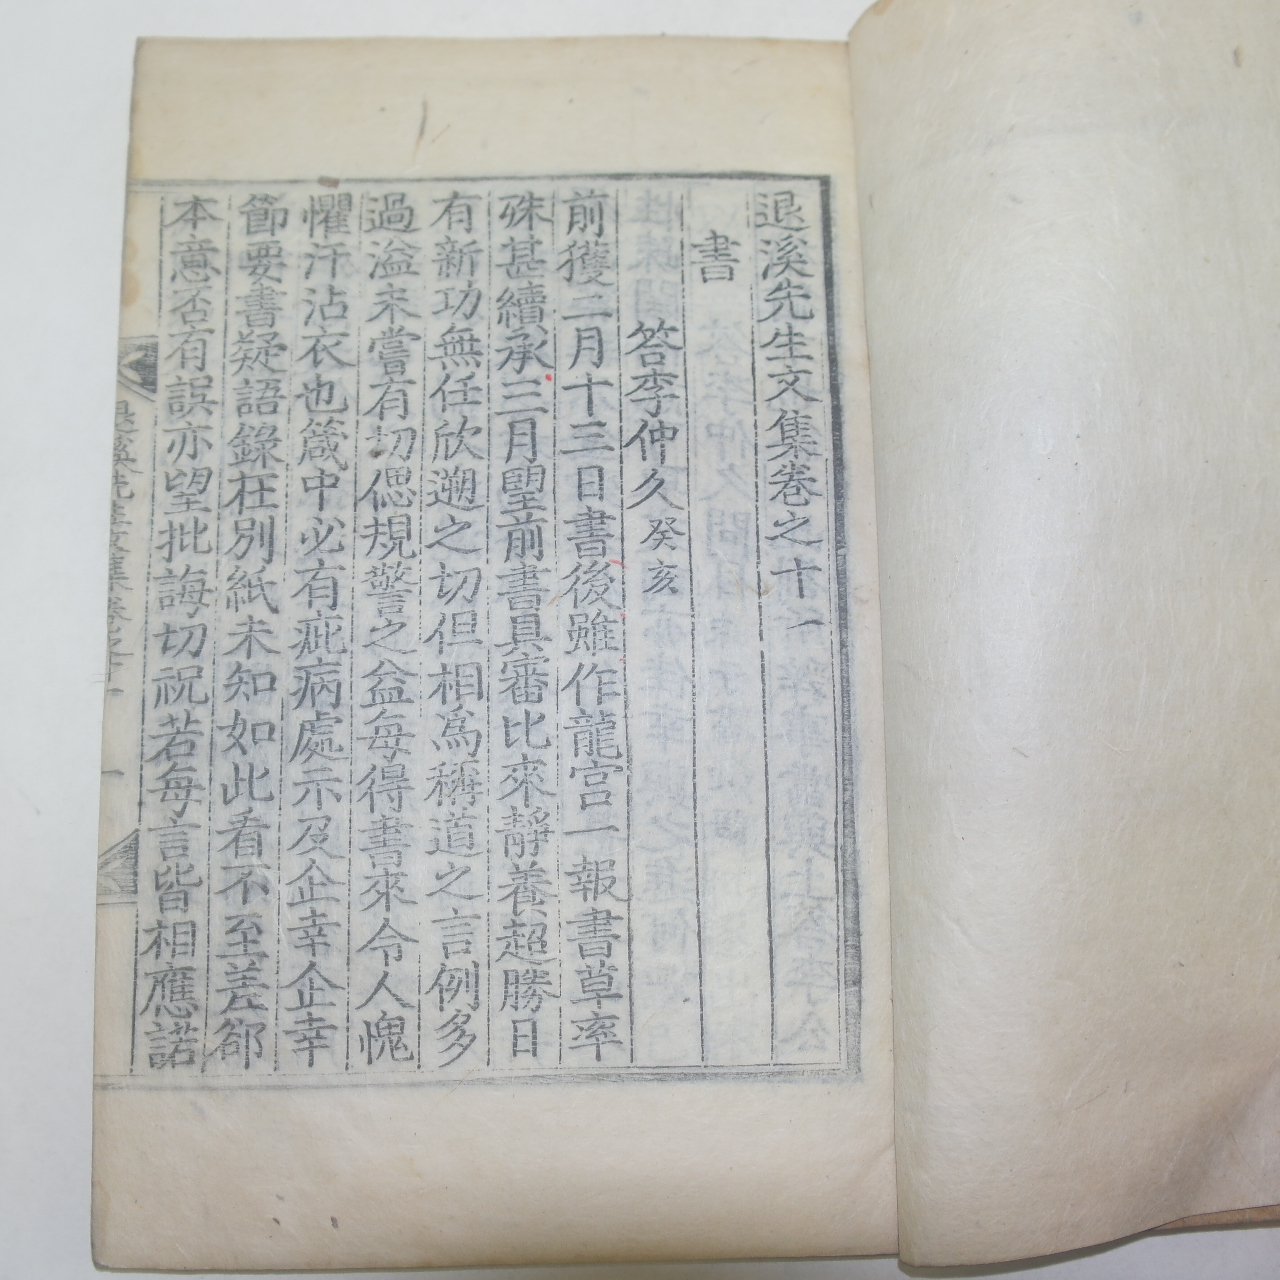 退溪先生文集卷之十一
書
答李仲久 癸亥
前獲二月十三日書後雖作龍宮一報書草率
殊甚續承三月望前書具審比來靜養超勝日
有新功無任欣遡之切但相爲稱道之言例多
過溢未嘗有切偲規警之益每得書來令人愧
懼汗沾衣也箴中必有疵病處示及企幸企幸
節要書疑語錄在別紙未知如此看不至差郤
本意否有誤亦望批誨切祝若每言皆相應諾
退溪先生文集卷之十一 一